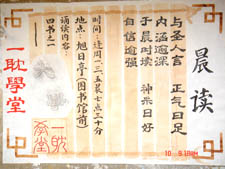 晨读
与圣人言 正气日足
内涵逾深
于晨时读 神采日好
自信逾强
时间:逢周一三五晨七点三十分
地点:旭日亭(图书馆前)
诵读内容:
四书之一
一耽學堂
一耽學堂